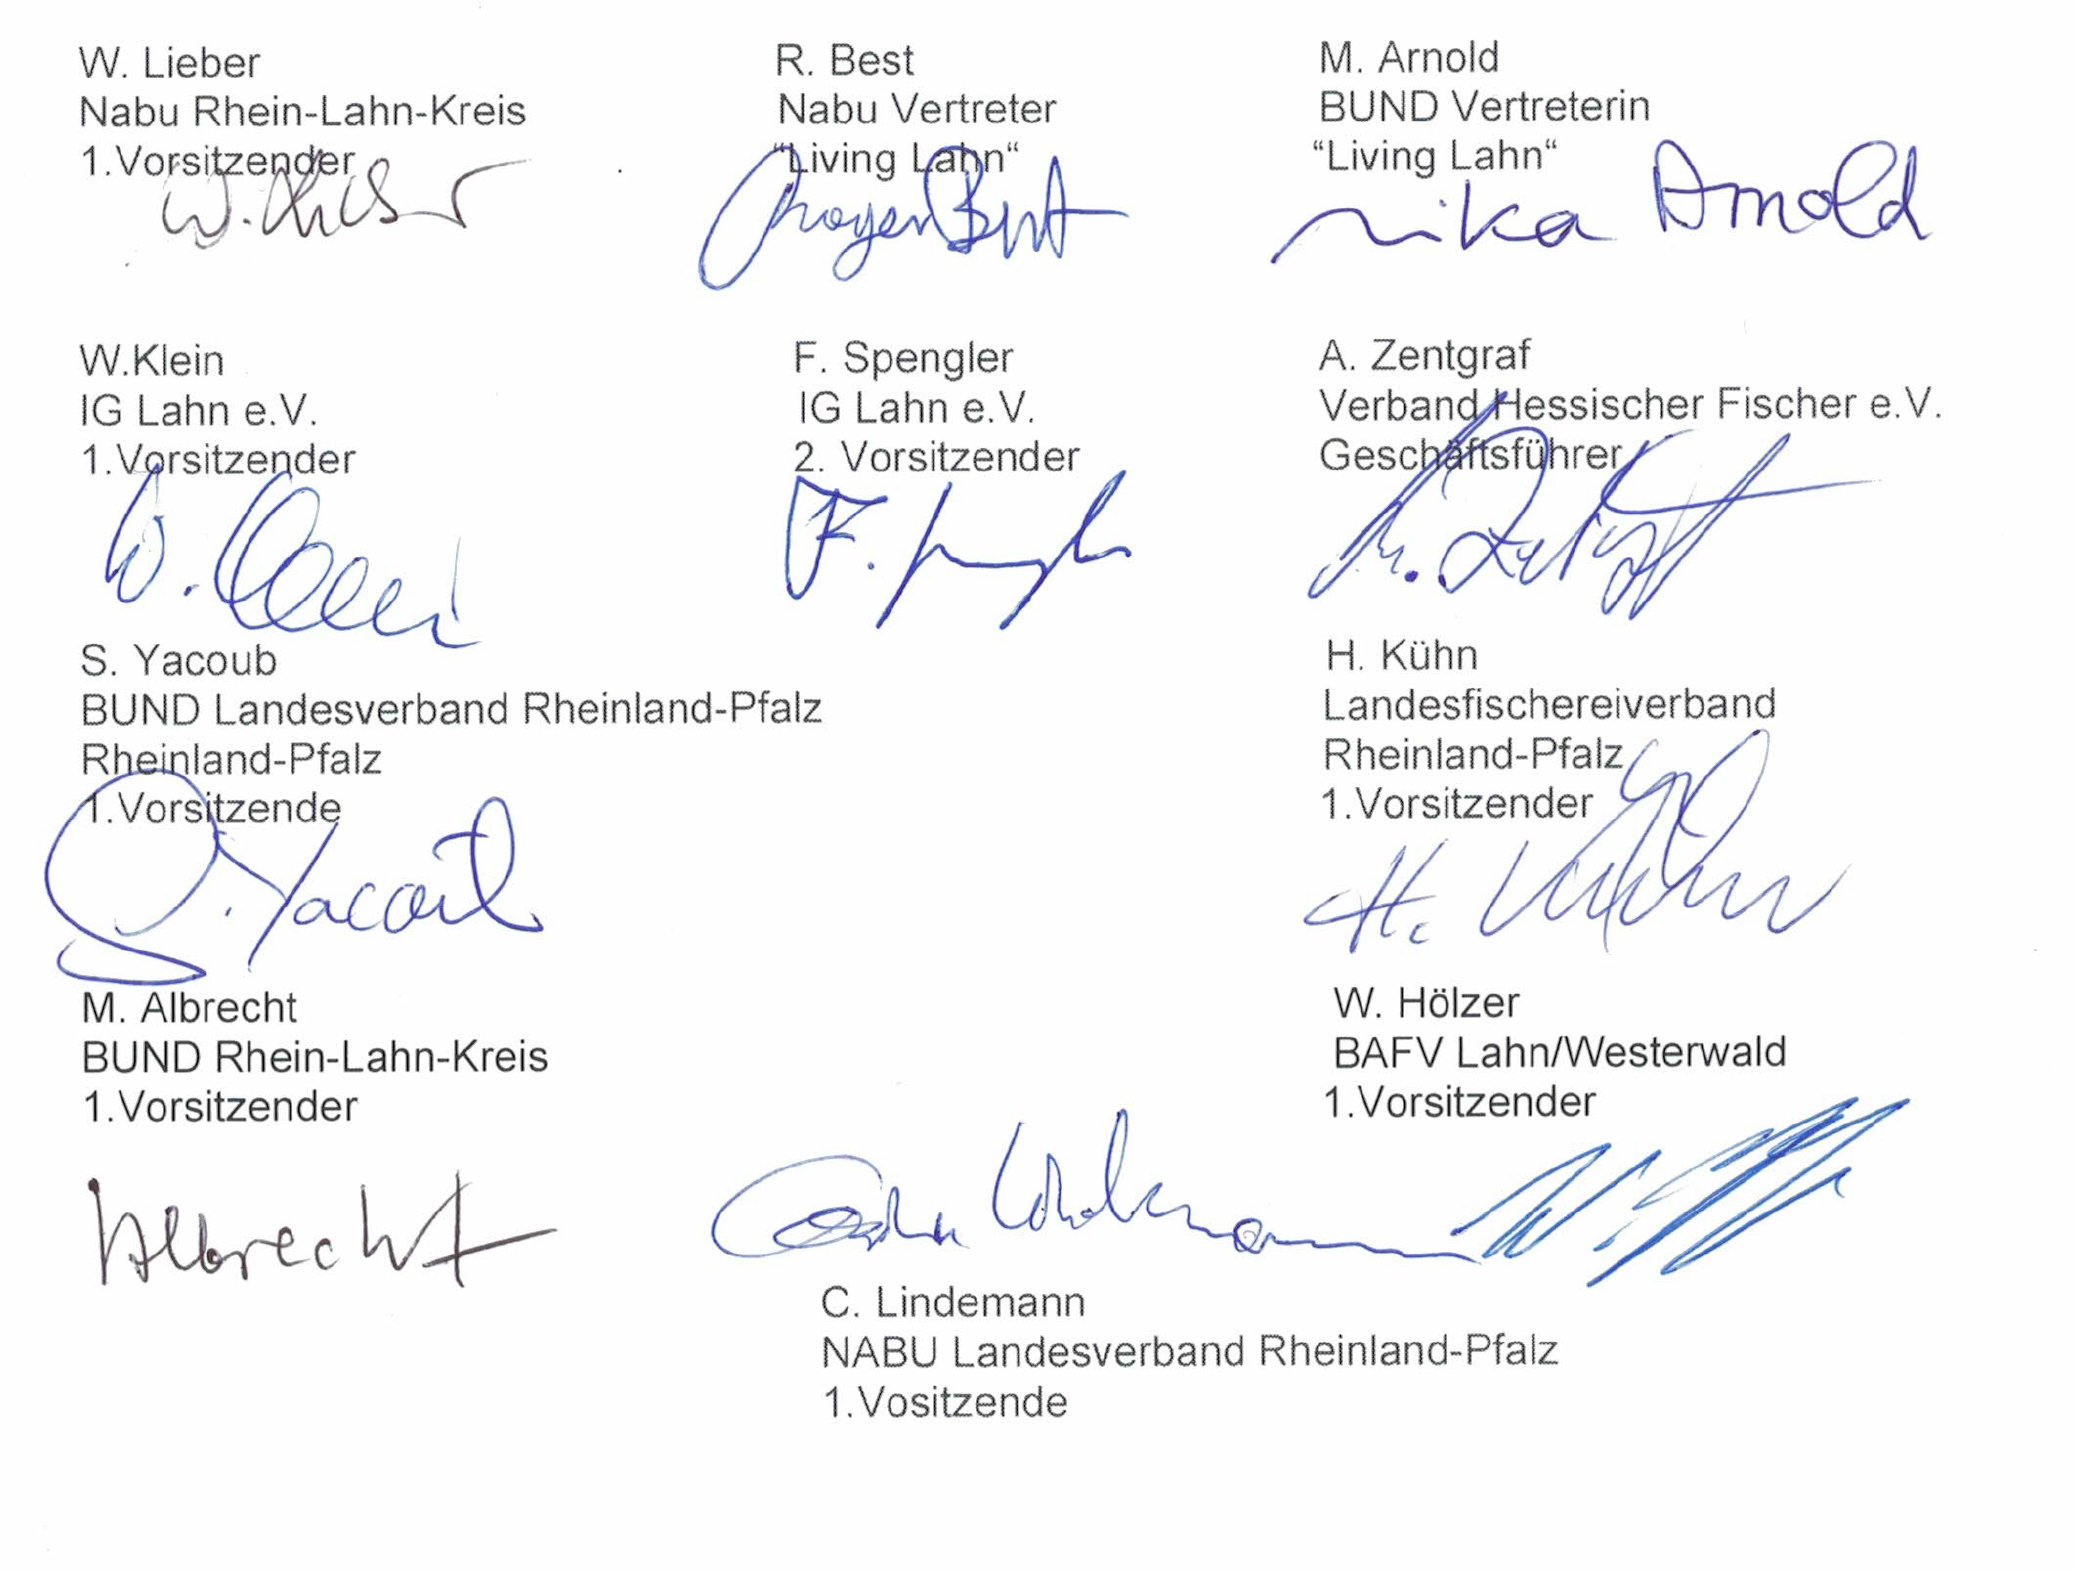 W. Lieber
Nabu Rhein-Lahn-Kreis
1.Vorsitzender
W. Lieber
R. Best
Nabu Vertreter
“Living Lahn“
Best
M. Arnold
BUND Vertreterin
“Living Lahn“
Mika Arnold
W.Klein
IG Lahn e.V.
1.Vorsitzender
W. Klein
F. Spengler
IG Lahn e.V.
2. Vorsitzender
F. Spengler
A. Zentgraf
Verband Hessischer Fischer e.V.
Geschäftsführer
A. Zentgraf
S. Yacoub
BUND Landesverband Rheinland-Pfalz
Rheinland-Pfalz
1.Vorsitzende
S. Yacoub
H. Kühn
Landesfischereiverband
Rheinland-Pfalz
1.Vorsitzender
H. Kühn
M. Albrecht
BUND Rhein-Lahn-Kreis
1.Vorsitzender
Albrecht
W. Hölzer
BAFV Lahn/Westerwald
1.Vorsitzender
Lindemann
C. Lindemann
NABU Landesverband Rheinland-Pfalz
1.Vositzende